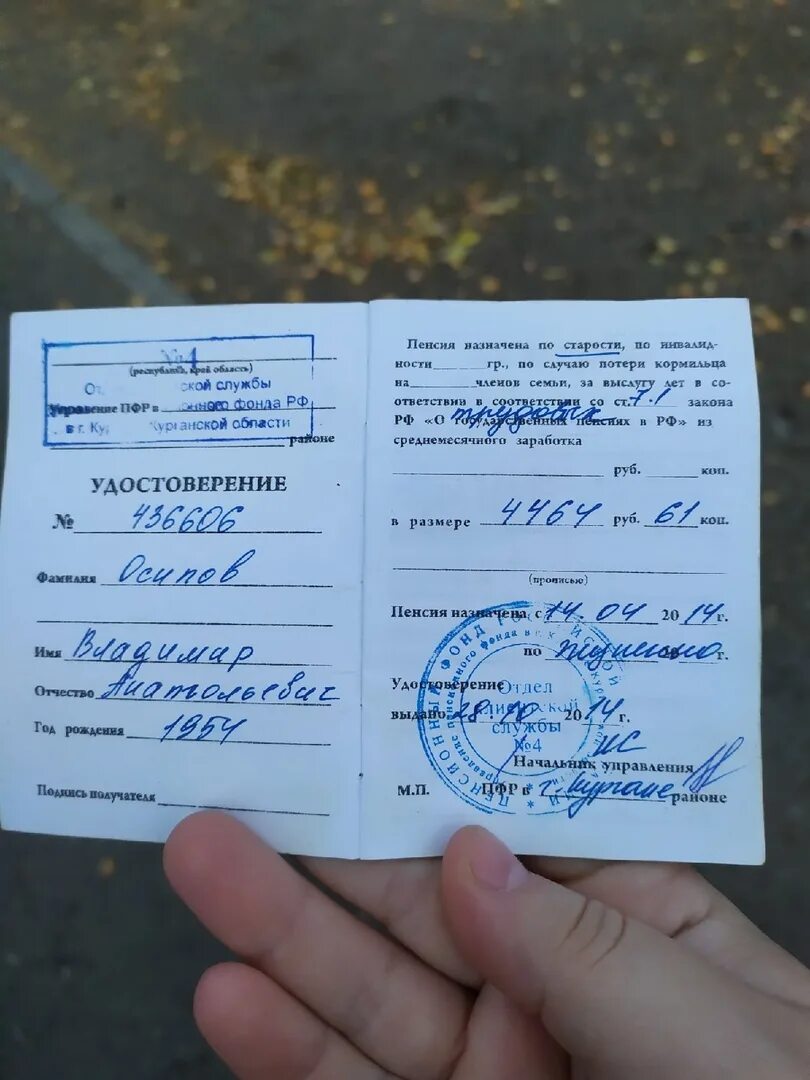 №4
(республика, край область)
ской службы
Управление ПФР в онного фонда РФ
в г. Ку Курганской области
районе
УДОСТОВЕРЕНИЕ
№ 436606
Фамилия Осипов
Имя Владимир
Отчество Анатольевич
Год рождения 1954
Подпись получателя
Пенсия назначена по старости, по инвалид-
ности гр., по случаю потери кормильца
на членов семьи, за выслугу лет в со-
ответствии в соответствии со ст. 7.1 закона
трудовых
РФ «О государственных пенсиях в РФ» из
среднемесячного заработка
руб. коп.
в размере 4464 руб. 61 коп.
(прописью)
Пенсия назначена с 14 04 2014 г.
по г.
Удостоверение
выдано 28.10 2014 г.
Отдел
клиентской
службы
№4
Начальник управления
М.П. ПФР в г. Кургане районе